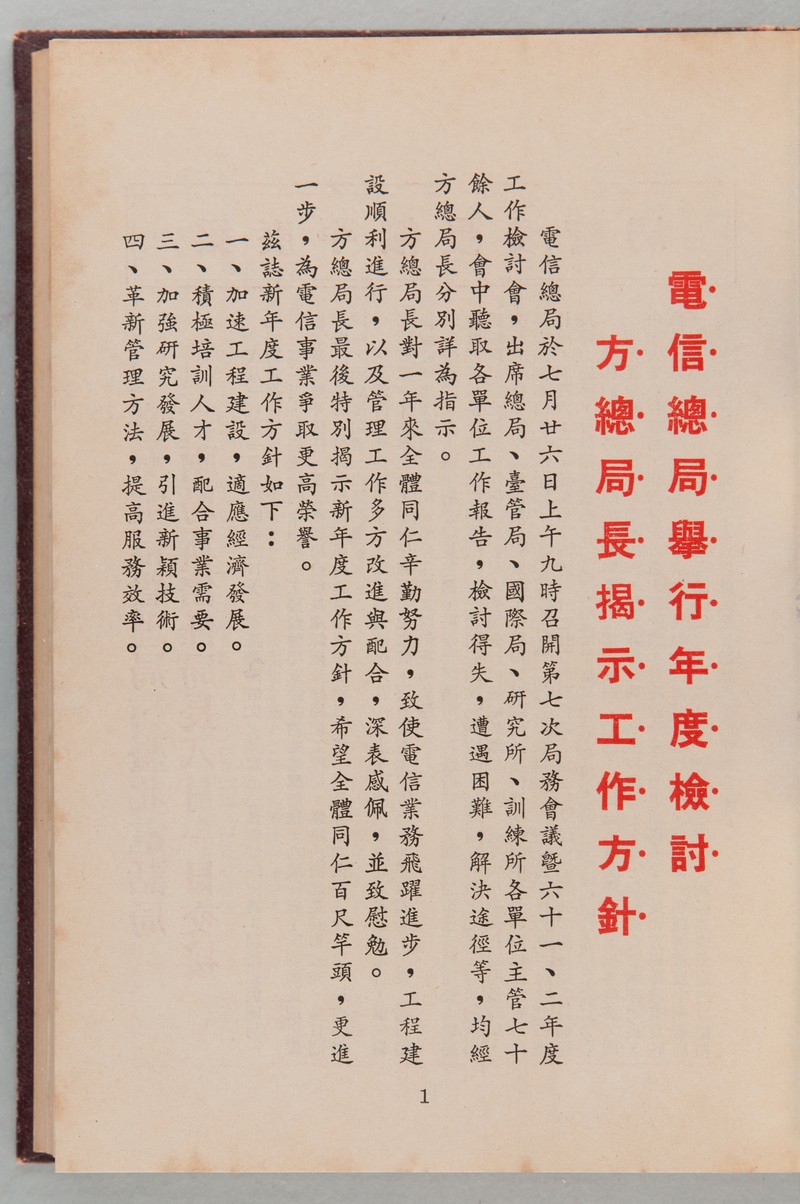 電信總局舉行年度檢討
方總局長揭示工作方針
電信總局於七月廿六日上午九時召開第七次局務會議暨六十一、二年度
工作檢討會，出席總局、臺管局、國際局、研究所、訓練所各單位主管七十
餘人，會中聽取各單位工作報告，檢討得失，遭遇困難，解決途徑等，均經
方總局長分別詳為指示。
方總局長對一年來全體同仁辛勤努力，致使電信業務飛躍進步，工程建
設順利進行，以及管理工作多方改進與配合，深表感佩，並致慰勉。
方總局長最後特別揭示新年度工作方針，希望全體同仁百尺竿頭，更進
一步，為電信事業爭取更高榮譽。
茲誌新年度工作方針如下：
一、加速工程建設，適應經濟發展。
二、積極培訓人才，配合事業需要。
三、加強研究發展，引進新穎技術。
四、革新管理方法，提高服務效率。
1